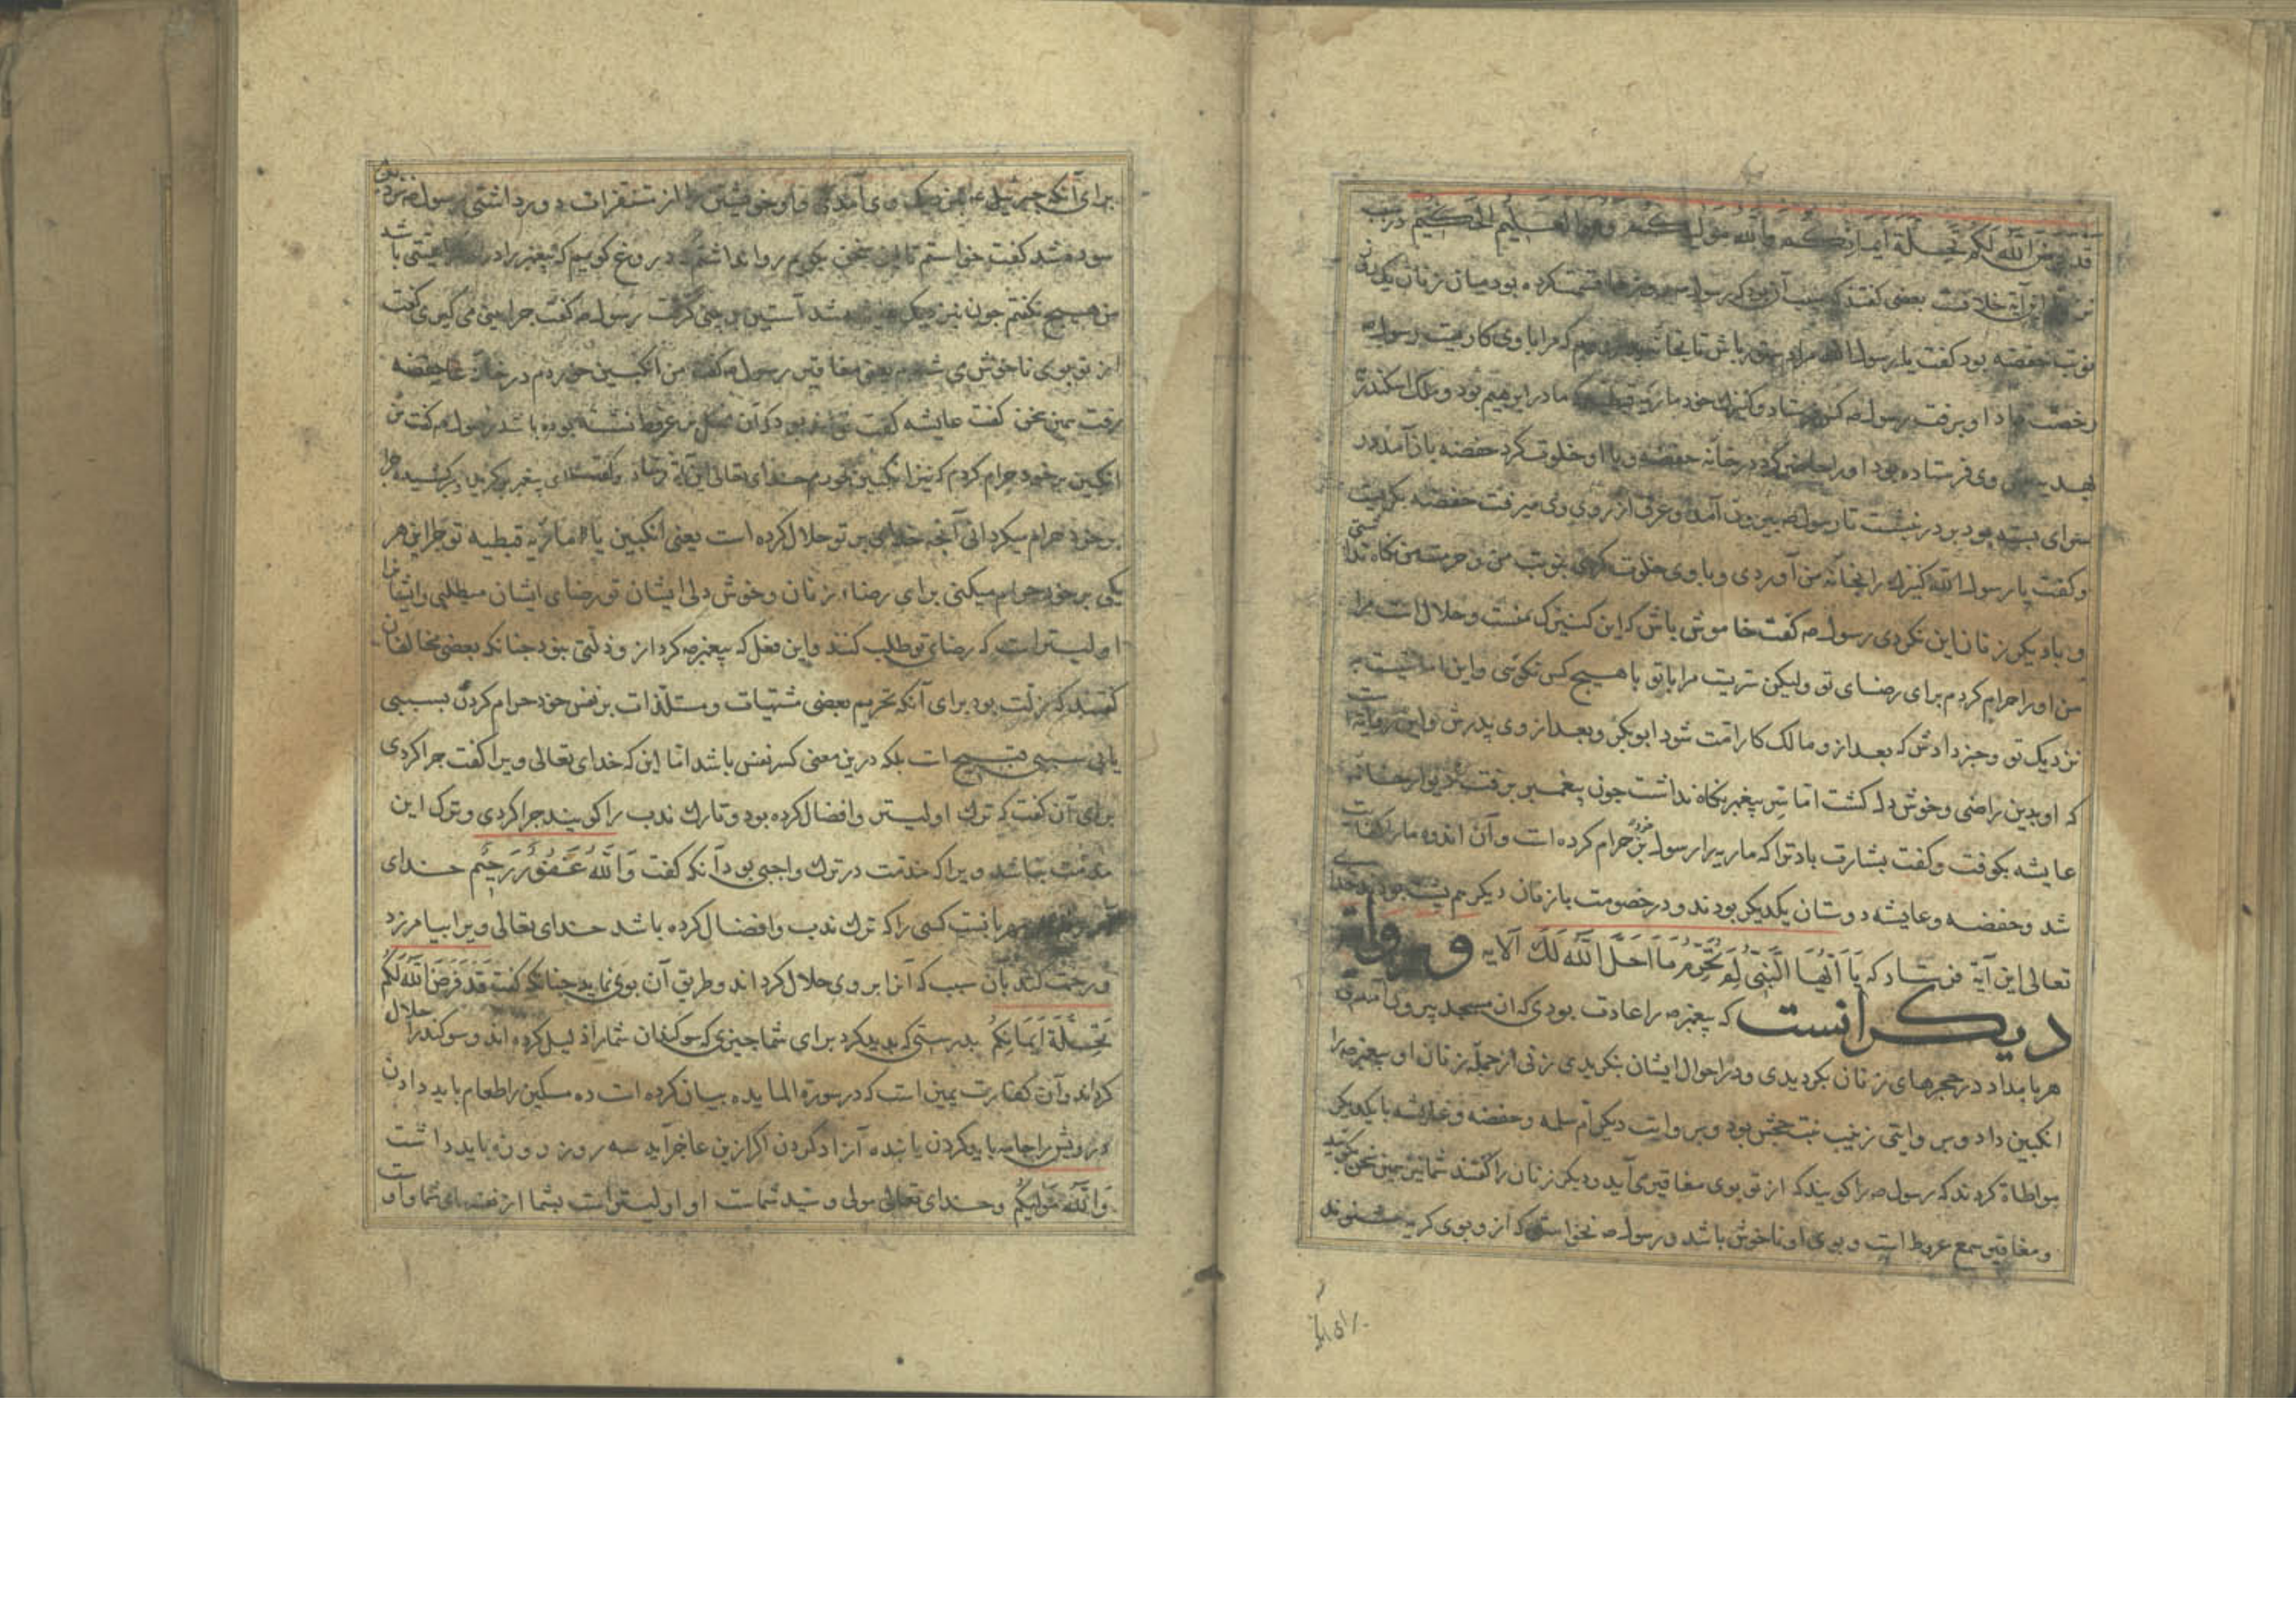 قد فرض الله لکم تحلة ایمانکم والله مولیکم وهو العلیم الحکیم در سبب
این آیة خلافست بعضی گفتند که سبب آن بود که رسول صه روزها قسمت کرده بود میان زنان یک روز
نوبت حفصه بود گفت یا رسول الله مرا دستور باش تا بخانه پدر روم که مرا با وی کاریست رسول صه
رخصت داد او برفت رسول صه کس فرستاد و کنیزک خود ماریه قبطیه که مادر ابرهیم بود و ملک اسکندر
بهدیه وی فرستاده بود او را حاضر کرد در خانه حفصه و با او خلوت کرد حفصه باز آمد در
سرای بسته بود بر در نشست تا رسول صه بیرون آمد و عرق از روی وی میرفت حفصه بگریست
و گفت یا رسول الله کنیزک را بخانه من آوردی و با وی خلوت کردی بنوبت من و حرمت من نگاه نداشتی
و با دیگر زنان این نکردی رسول صه گفت خاموش باش که این کنیزک منست و حلال است مرا
من او را حرام کردم برای رضای تو ولیکن سریست مرا با تو با هیچ کس نگوئی و این امانتیست
نزدیک تو و خبر دادش که بعد از و مالک کار امت شود ابوبکر و بعد از وی پدرش و این روایتست
که او بدین راضی و خوش دل گشت اما سر پیغمبر نگاه نداشت جون پیغمبر برفت دیوار خانه
عایشه بکوفت و گفت بشارت باد ترا که ماریه را رسول بر خود حرام کرده است و آن اندوه ما را کفایت
شد و حفصه و عایشه دوستان یکدیگر بودند و در خصومت با زنان دیگر هم پشت بودند خدای
تعالی این آیة فرستاد که یا ایها النبی لم تحرم ما احل الله لک الآیه و روایة
دیگر آنست که پیغمبر صه را عادت بودی که از مسجد بیرون آمدی
هر بامداد در حجرهای زنان بگردیدی و در احوال ایشان بنگریدی زنی از جمله زنان او پیغمبر صه را
انگبین داد و بر وایتی زینب بنت جحش بود و بر وایت دیگر ام سلمه و حفصه و عایشه با یکدیگر
مواطاة کردند که رسول صه را گویند که از تو بوی مغافیر می آید و دیگر زنان را گفتند شما نیز همین سخن بگوئید
و مغافیر صمغ عرفط است و بوی او ناخوش باشد و رسول صه نخواستی که از و بوی کریه شنوند
برای آنکه
برای آنکه جبرئیل عه نزدیک وی آمدی و او خویشتن را از مستقذرات دور داشتی رسول صه نزد
سوده شد گفت خواستم تا این سخن بگویم روا نداشتم که دروغ گویم که پیغمبر را در باشد
من هیچ نگفتم جون نزدیک عایشه شد آستین بر بینی گرفت رسول صه گفت جرا بینی می گیری گفت
از تو بوی ناخوش می شنوم یعنی مغافیر رسول صه گفت من انگبین خوردم در خانه حفصه
رفت همین سخن گفت عایشه گفت تواند بود که آن نحل بر عرفط نشسته بوده باشد رسول صه گفت من
انگبین بر خود حرام کردم که نیز انگبین نخورم خدای تعالی این آیة فرستاد و گفت ای پیغمبر جرا
بر خود حرام میگردانی آنجه خدای بر تو حلال کرده است یعنی انگبین یا ماریه قبطیه تو جرا این هر
یکی بر خود حرام میکنی برای رضاء زنان و خوش دلی ایشان تو رضای ایشان میطلبی و ایشان
اولیتراست که رضای تو طلب کنند و این فعل که پیغمبر صه کرد از و ذلتی نبود جنانکه بعضی مخالفان
گفتند که زلت بود برای آنکه تحریم بعضی مشتهیات و مستلذات بر نفس خود حرام کردن بسببی
یا بی سببی قبیح است بلکه درین معنی کسر نفس باشد اما این که خدای تعالی ویرا گفت جرا کردی
برای آن گفت که ترک اولیتر و افضال کرده بود و تارک ندب را گویند جرا کردی و ترک این
مذمت نباشد ویرا که مذمت در ترک واجبی بود آنکه گفت والله غفور رحیم خدای
بانست کسی را که ترک ندب و افضال کرده باشد خدای تعالی ویرا بیامرزد
و رحمت کند بآن سبب که آنرا بر وی حلال کرداند و طریق آن بوی نماید جنانکه گفت قد فرض الله لکم
تحلة ایمانکم بدرستی که بدید کرد برای شما جیزی که سوگندان شما را ذلیل کرده اند و سوگند را حلال
کرداند و آن کفارت یمین است که در سورة المایده بیان کرده است ده مسکین را طعام باید دادن
درویش را جامه باید کردن یا بنده آزاد کردن اگر ازین عاجز آید سه روز روزه باید داشت
والله مولیکم و خدای تعالی مولی و سید شماست او اولیتراست بشما از نفسهای شما و او